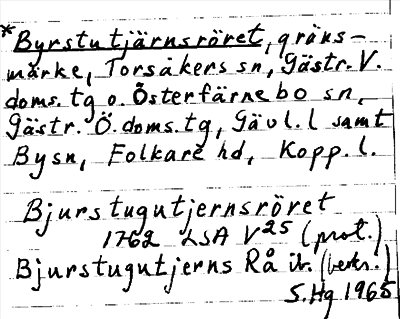 *Byrstutjärnsröret, gräns-
märke, Torsåkers sn, Gästr. V.
doms. tg o. Österfärnebo sn,
Gästr. Ö. doms. tg, Gävl. l samt
By sn, Folkare hd, Kopp. l.
Bjurstugutjernsröret
1762 LSA V25 (prot.)
Bjurstugutjerns Rå ib. (beskr.)
S. Hg 1965